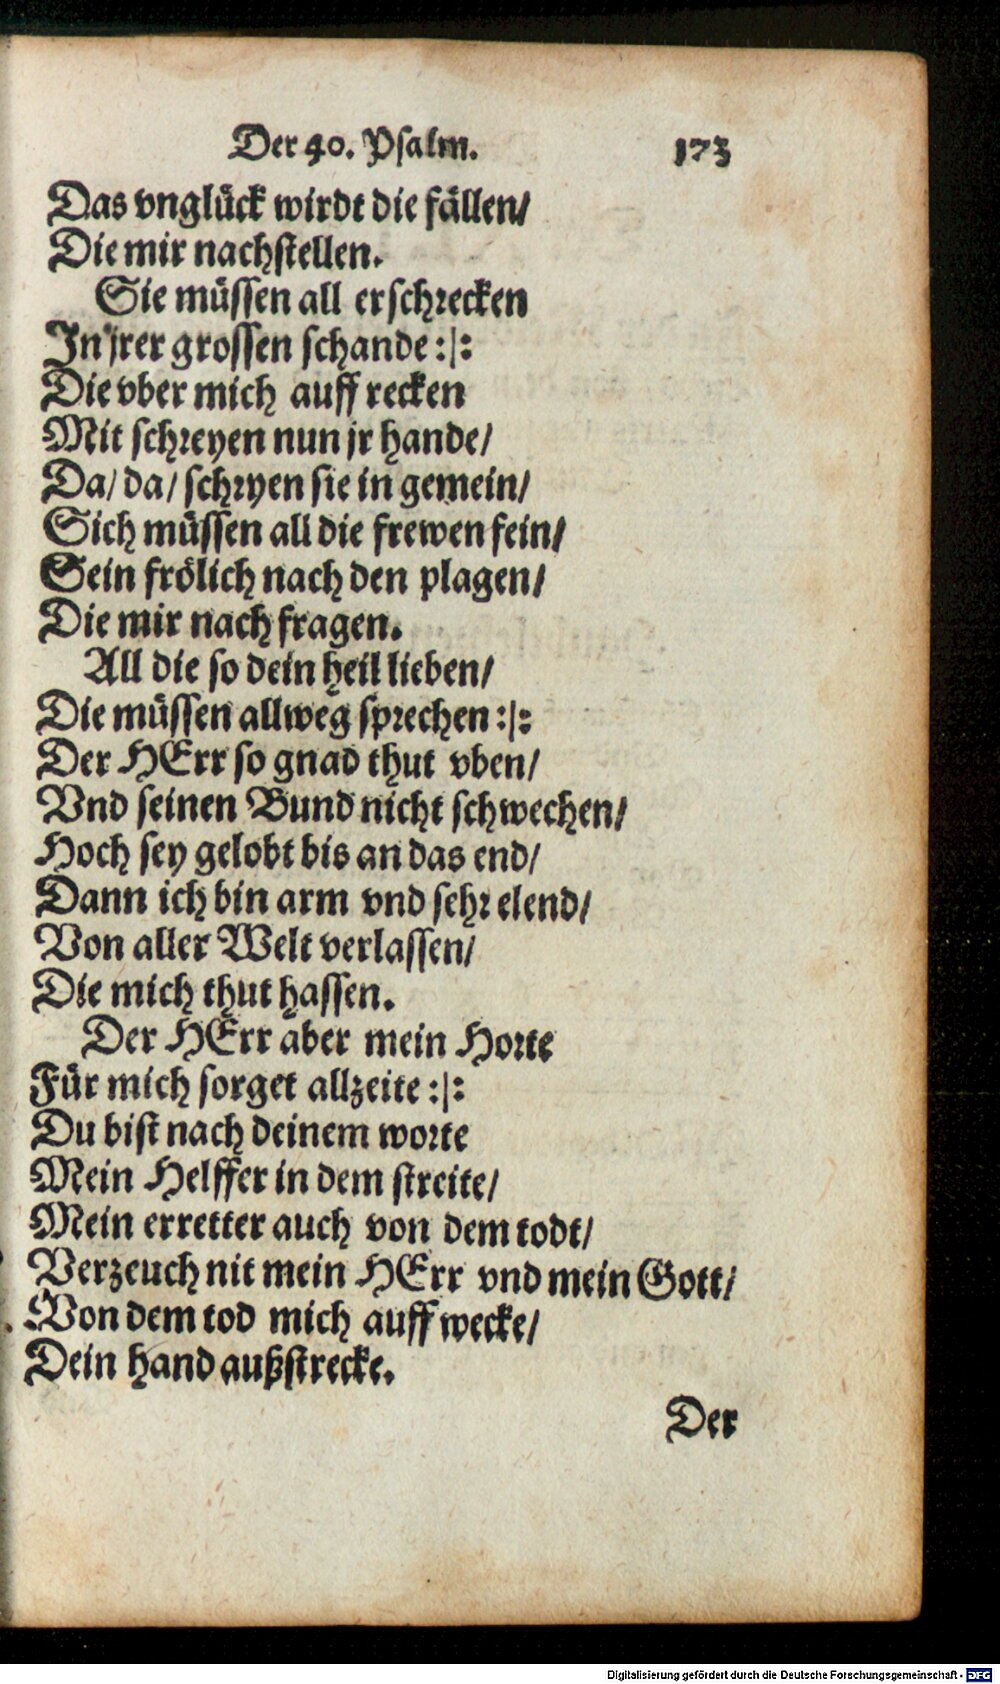 Der 40. Psalm. 173
Das vnglück wirdt die fällen/
Die mir nachstellen.
Sie müssen all erschrecken
In jrer grossen schande :|:
Die vber mich auff recken
Mit schreyen nun jr hande/
Da/ da/ schryen sie in gemein/
Sich müssen all die frewen fein/
Sein frölich nach den plagen/
Die mir nach fragen.
All die so dein heil lieben/
Die müssen allweg sprechen :|:
Der HErr so gnad thut vben/
Vnd seinen Bund nicht schwechen/
Hoch sey gelobt bis an das end/
Dann ich bin arm vnd sehr elend/
Von aller Welt verlassen/
Die mich thut hassen.
Der HErr aber mein Horte
Für mich sorget allzeite :|:
Du bist nach deinem worte
Mein Helffer in dem streite/
Mein erretter auch von dem todt/
Verzeuch nit mein HErr vnd mein Gott/
Von dem tod mich auff wecke/
Dein hand außstrecke.
Der
Digitalisierung gefördert durch die Deutsche Forschungsgemeinschaft - DFG